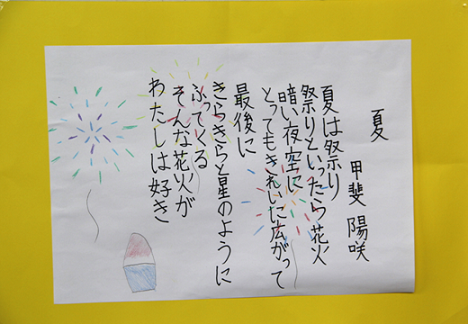 夏
甲斐 陽咲
夏は祭り
祭りといったら花火
暗い夜空に
とってもきれいに広がって
最後に
きらきらと星のように
ふってくる
そんな花火が
わたしは好き